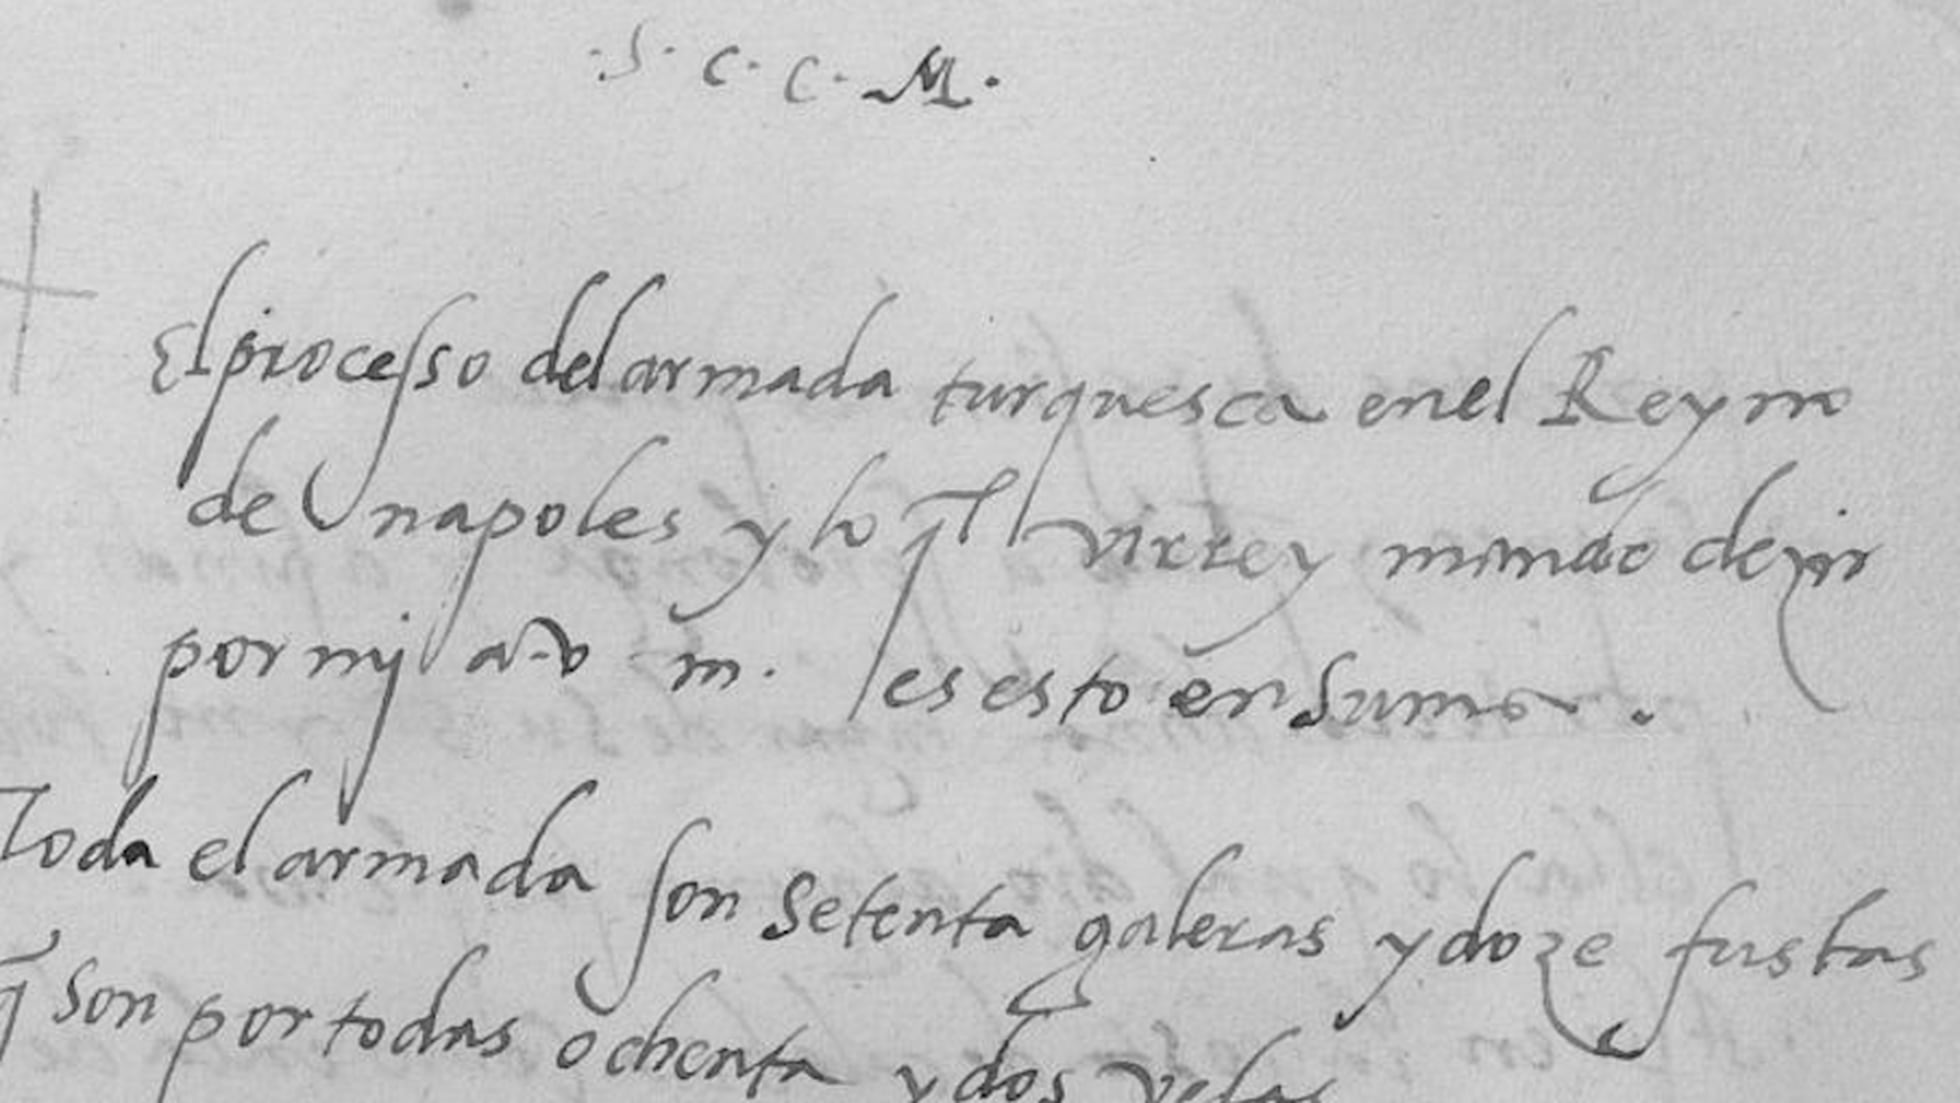 .S. C. C. M.
El processo del armada turquesca en el Reyno
de napoles y lo q̃l virrey mando dezir
por mj a v. m. es esto en suma.
Toda el armada son setenta galeras y doze fustas
q̃ son por todas ochenta y dos velas